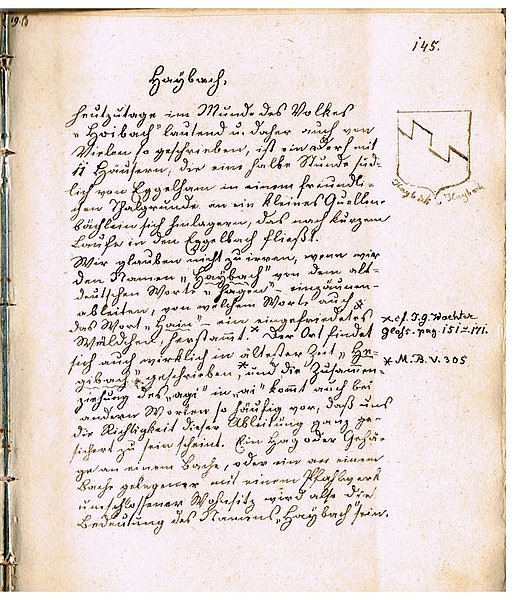 145.
Haybach,
heutzutage im Munde des Volkes
„Hoibach" lautend u. daher auch von
Vielen so geschrieben, ist ein Dorf mit
11 Häusern, die eine halbe Stunde süd-
lich von Eggelham in einem freundli-
chen Thalgrunde an ein kleines Quellen-
bächlein sich hinlagern, das nach kurzem
Laufe in den Eggelbach fließt.
Wir glauben nicht zu irren, wenn wir
den Namen „Haybach" von dem alt-
deutschen Worte „hagen" – einzäunen –
ableiten, von welchem Worte auch
das Wort „Hain" – ein eingefriedetes
Wäldchen, herstammt.* Der Ort findet
sich auch wirklich in ältester Zeit „Ha-
gibach" geschrieben,* und die Zusammen-
ziehung des „agi" in „ai" kommt auch bei
andern Worten so häufig vor, daß uns
die Richtigkeit dieser Ableitung ganz ge-
sichert zu sein scheint. Ein Hag oder Gehä-
ge an einem Bache, oder ein an einem
Bache gelegener mit einem Pfahlwerk
umschlossener Wohnsitz wird also die
Bedeutung des Namens „Haybach" sein.
* cf. J. G. Wachter
gloss. pag. 151 u. 171.
* M. B. V. 305